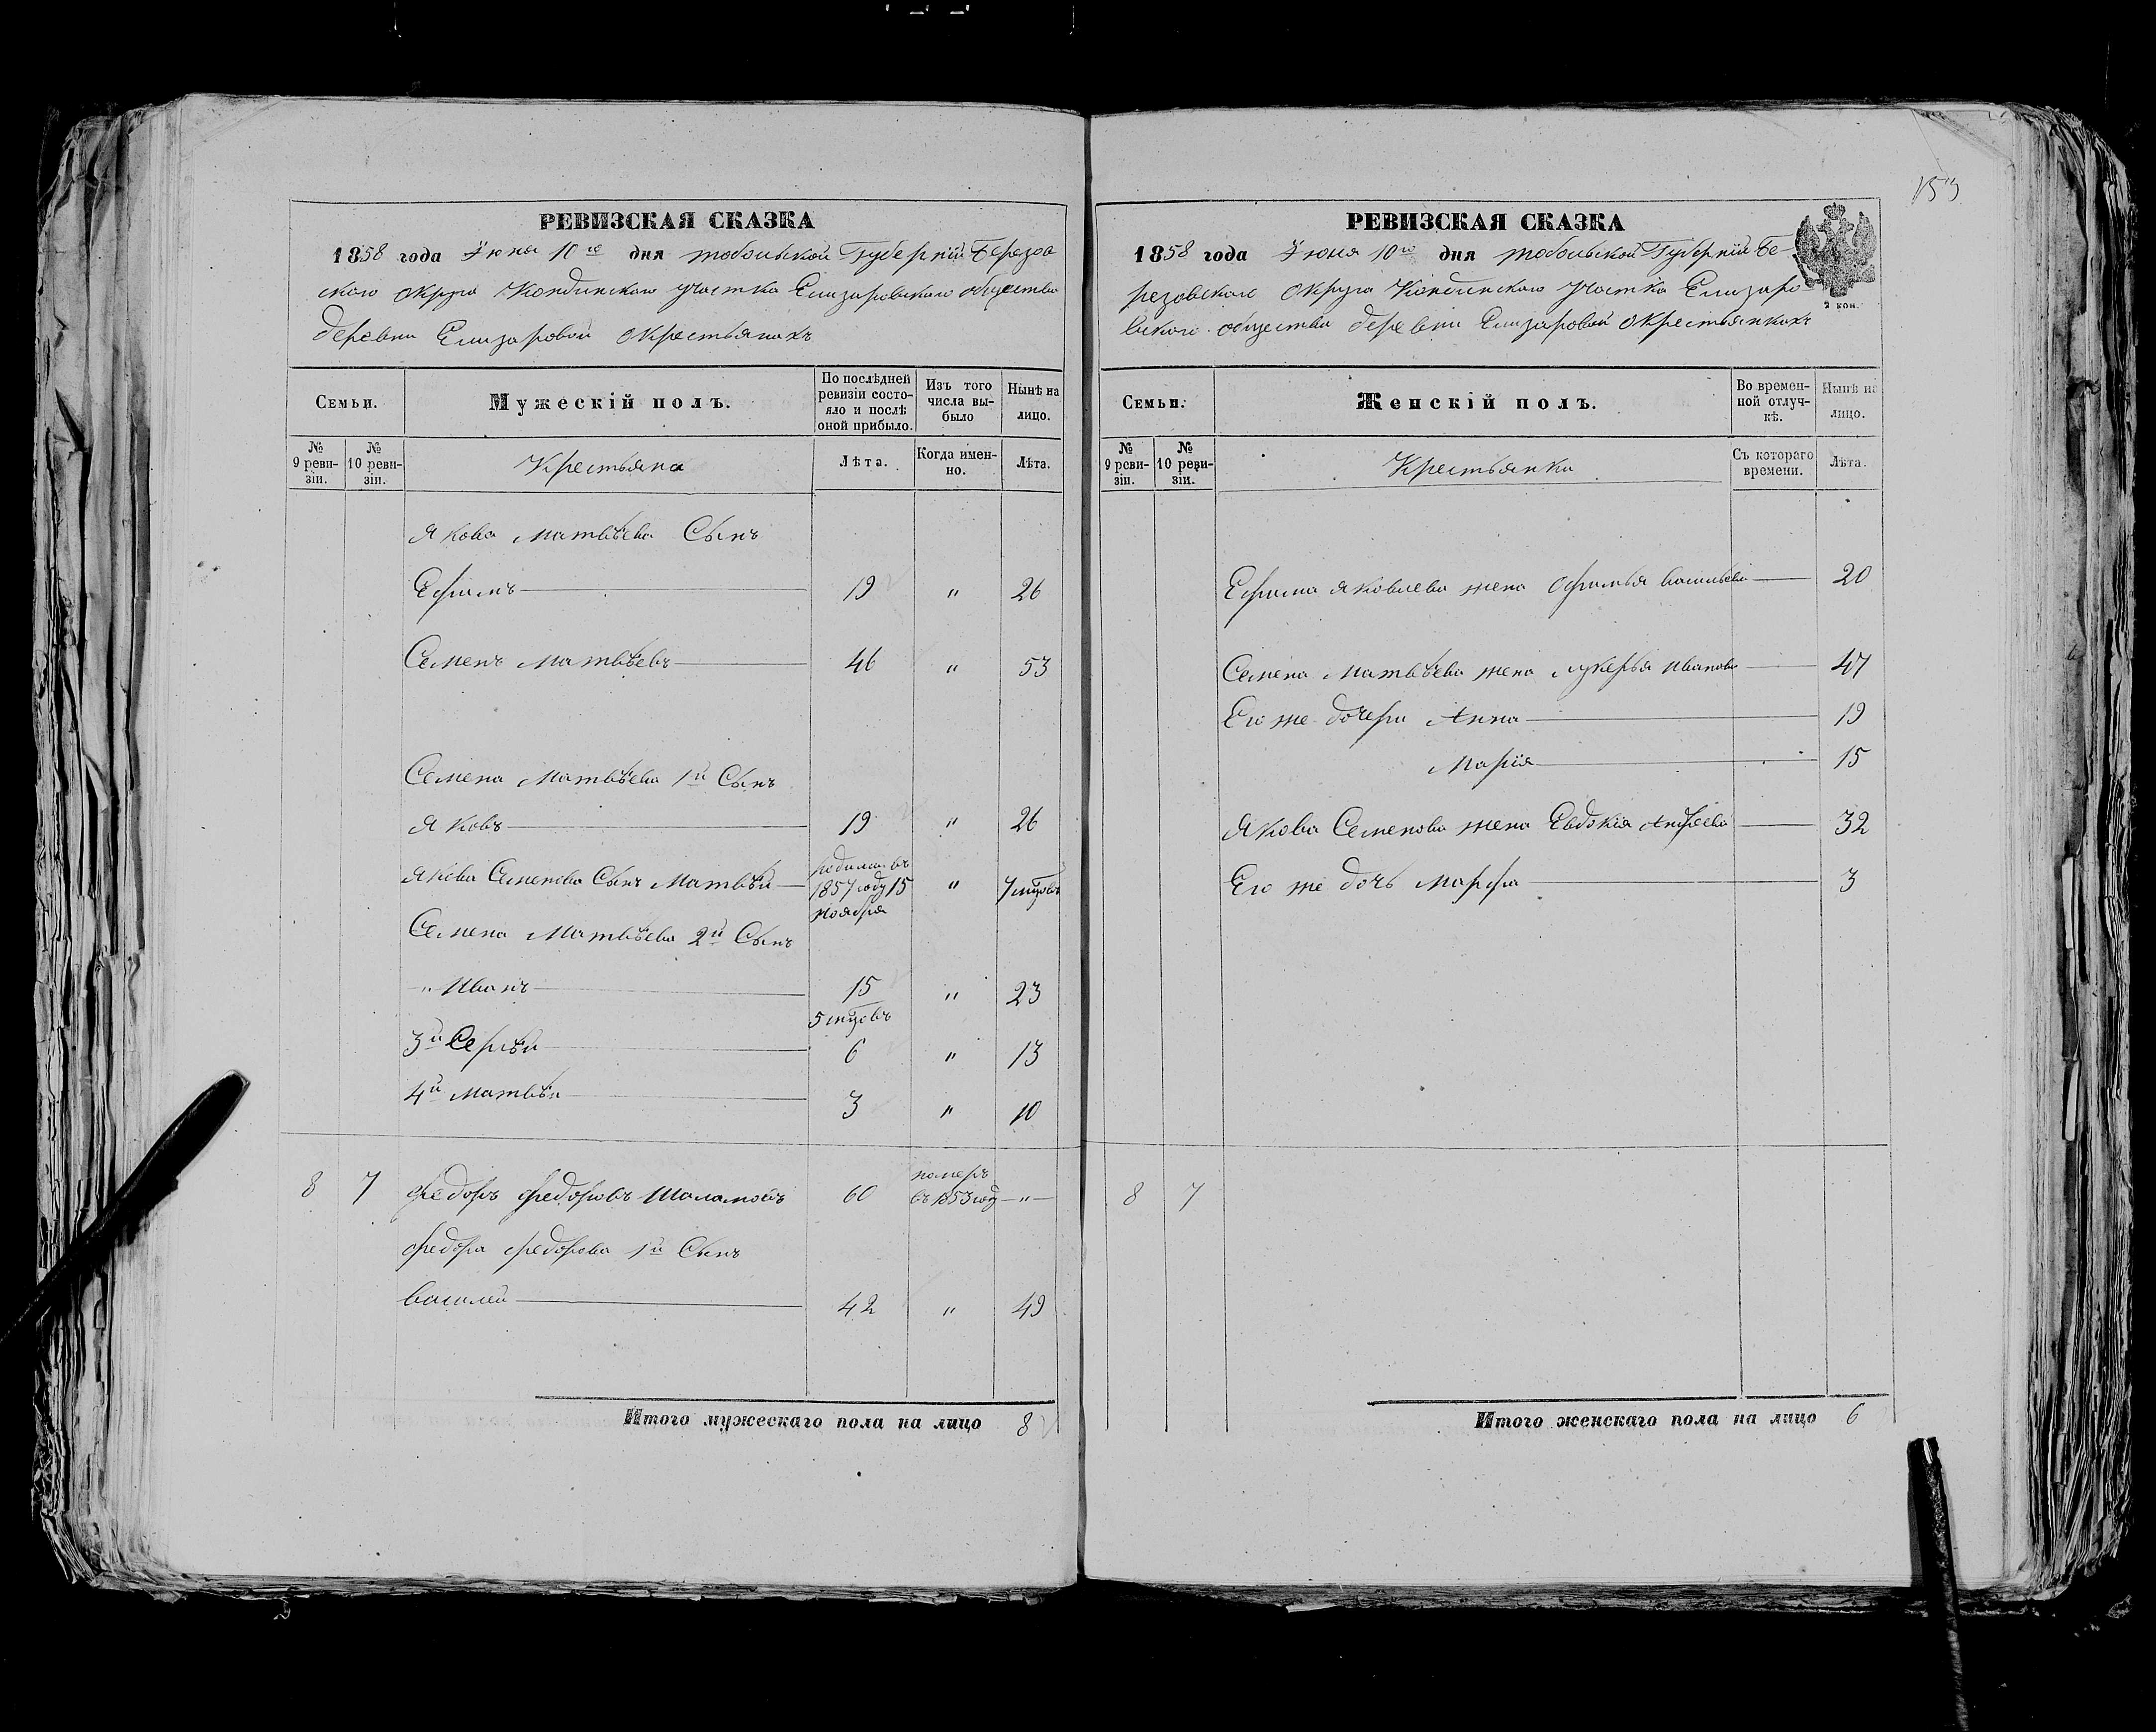 153
РЕВИЗСКАЯ СКАЗКА
1858 года Июня 10го дня тобольской Губернiи Березов
скаго округа Кондинскаго участка Елизаровскаго общества
деревни Елизаровой о крестьянахъ
Семьи.
Мужескiй полъ.
По послѣдней ревизiи состо-
яло и послѣ
оной прибыло.
Изъ того
числа вы-
было
Нынѣ на
лицо.
№
9 реви-
зiи.
№
10 реви-
зiи.
Крестьяна
Лѣта.
Когда имен-
но.
Лѣта.
Якова Матвѣева Сынъ
Ефимъ 19 " 26
Семенъ Матвѣевъ 46 " 53
Семена Матвѣева 1й Сынъ
Яковъ 19 " 26
Якова Семенова Сынъ Матвѣй родился въ 1857 году 15 ноября " 7 мцовъ
Семена Матвѣева 2й Сынъ
" Иванъ 15 " 23
5 мцовъ
3й Сергѣй 6 " 13
4й Матвѣй 3 " 10
8 7 Федоръ Федоровъ Шаламовъ 60 померъ въ 1853 году — " —
Федора Федорова 1й Сынъ
Василей 42 " 49
Итого мужескаго пола на лицо 8
РЕВИЗСКАЯ СКАЗКА
1858 года Июня 10го дня тобольской Губернiи Бе-
резовскаго округа Кондинскаго участка Елизаро-
вскаго общества деревни Елизаровой о крестьянкахъ
2 коп.
Семьи.
Женскiй полъ.
Во времен-
ной отлуч-
кѣ.
Нынѣ на
лицо.
№
9 реви-
зiи.
№
10 реви-
зiи.
Крестьянки
Съ котораго
времени.
Лѣта.
Ефима Яковлева жена Офимья Васильева 20
Семена Матвѣева жена Лукерья Иванова 47
Его же дочери Анна 19
Марiя 15
Якова Семенова жена Евдокiя Андреева 32
Его же дочь Марфа 3
8 7
Итого женскаго пола на лицо 6